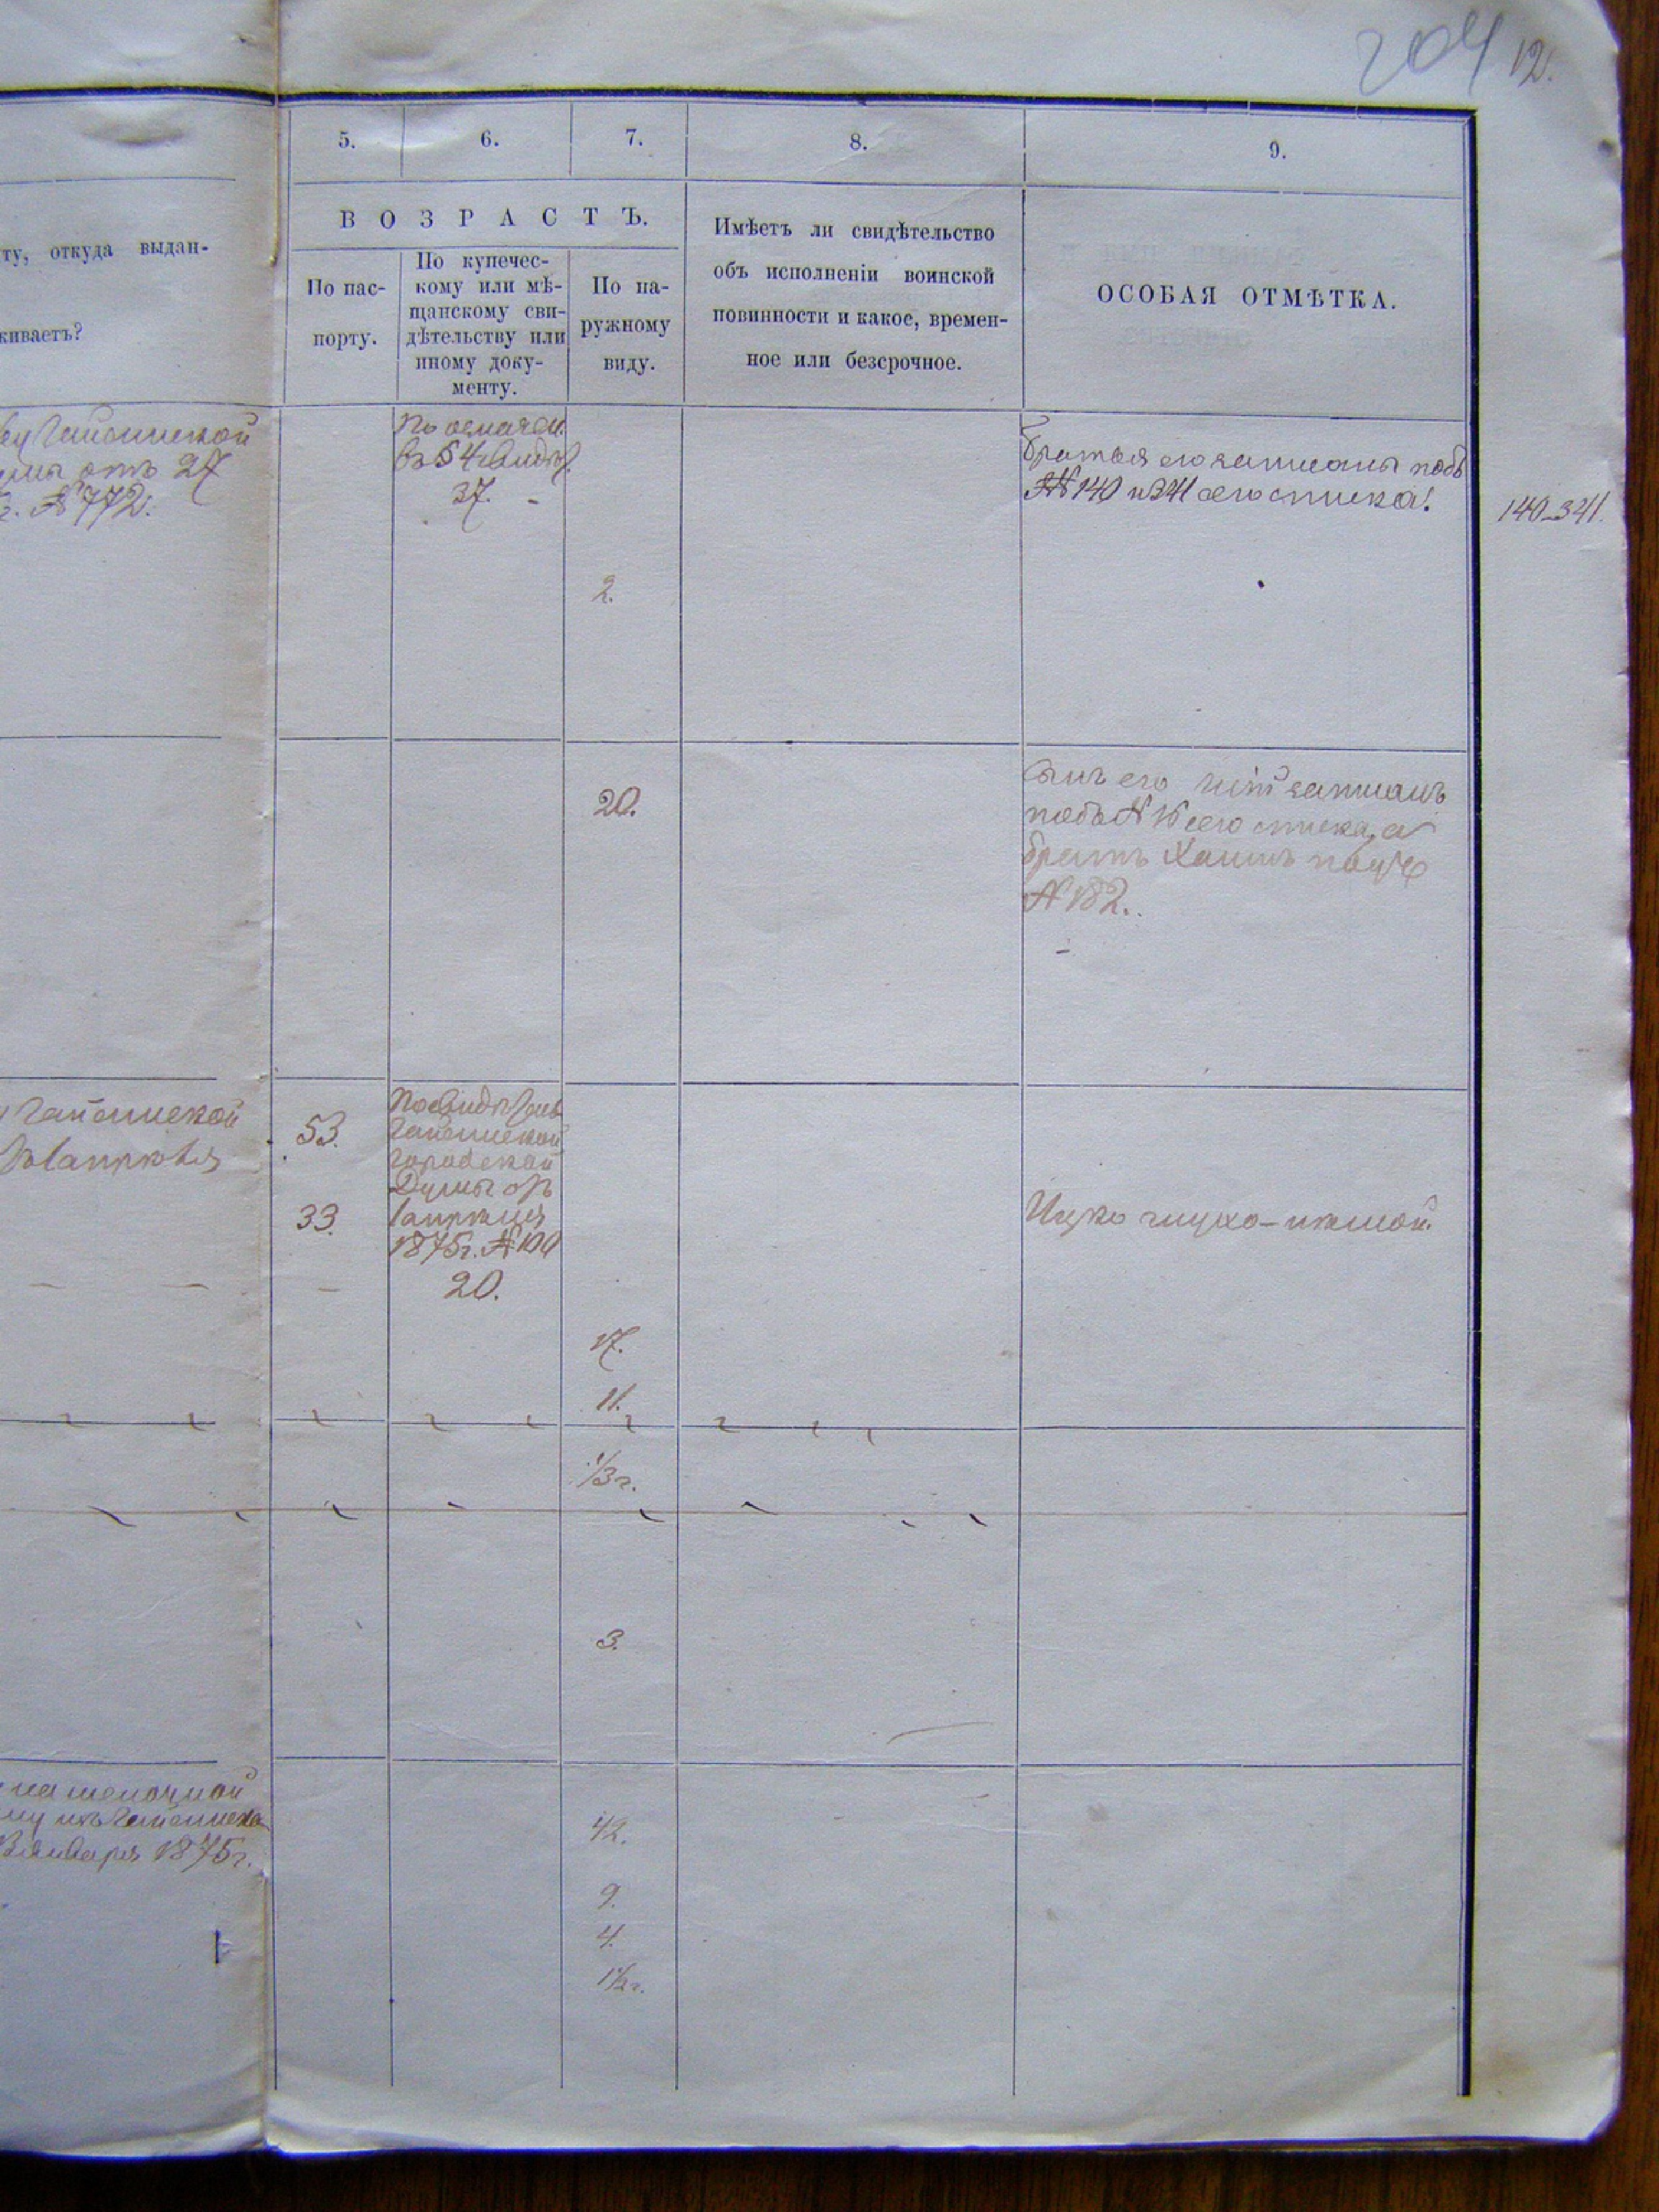 204 12.
5. 6. 7. 8. 9.
ту, откуда выдан-
живаетъ?
ВОЗРАСТЪ.
По пас-
порту.
По купечес-
кому или мѣ-
щанскому сви-
дѣтельству или
иному доку-
менту.
По на-
ружному
виду.
Имѣетъ ли свидѣтельство
объ исполненіи воинской
повинности и какое, времен-
ное или безсрочное.
ОСОБАЯ ОТМѢТКА.
Гайсинской
отъ 27
г. № 772.
въ § 4
37. -
2.
Братья его записаны подъ
№№ 140 и 341 сего списка.
140-341.
20.
Сынъ его записанъ
подъ № 16 сего списка, а
братъ Хаимъ
№ 182.
Гайсинской
53.
33.
Гайсинской
городской
Думы отъ
1875 г. №
20.
Ицко глухо-нѣмой.
17.
11.
1/3 г.
3.
изъ Гайсинска
Января 1875 г.
42.
9.
4.
1½ г.